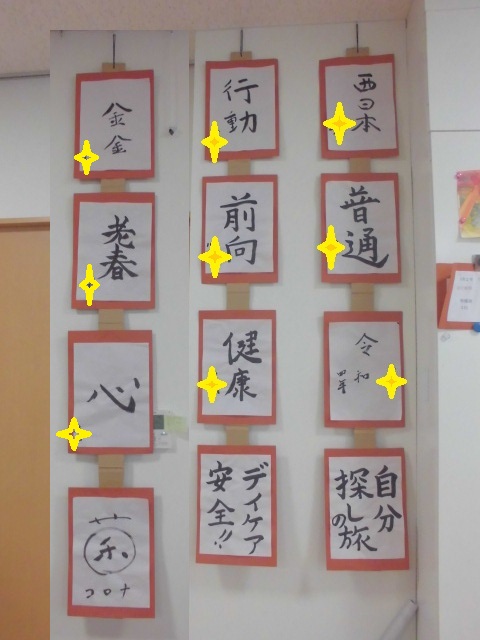 西日本
普通
令和
四年
自分
探しの旅
行動
前向
健康
デイケア
安全!!
金金
老春
心
コロナ